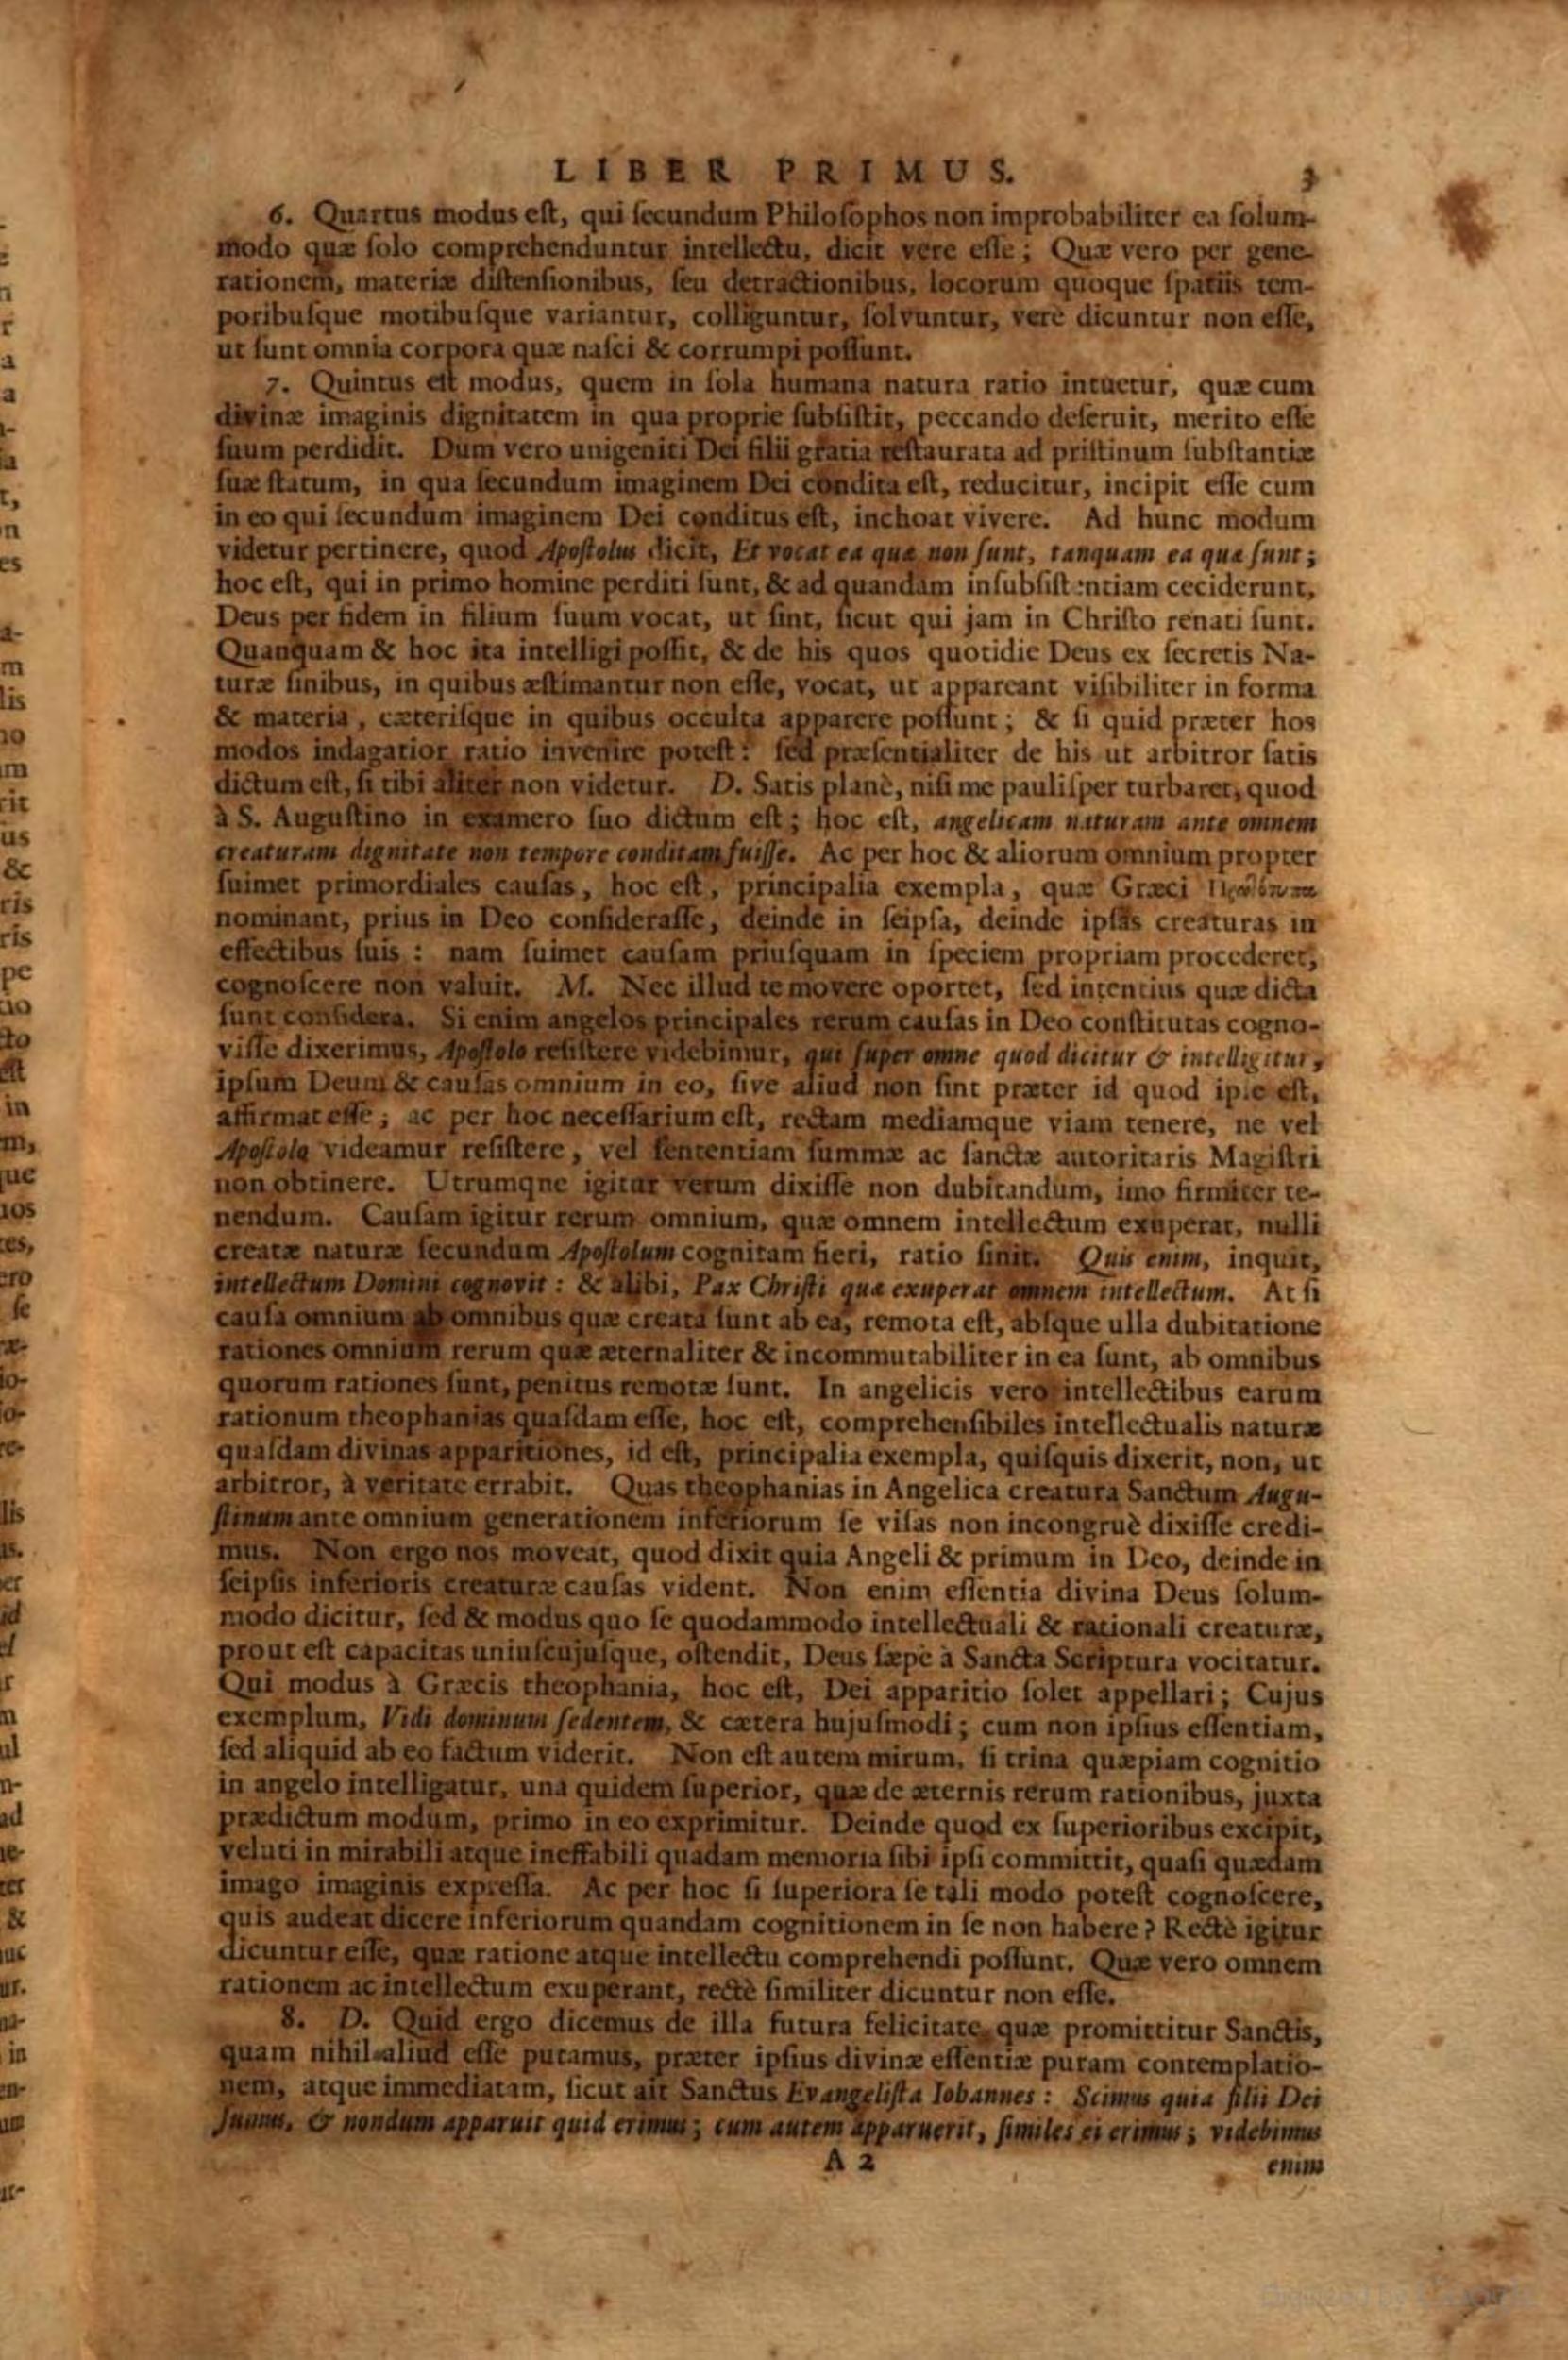 LIBER PRIMUS. 3
6. Quartus modus est, qui secundum Philosophos non improbabiliter ea solum-
modo quæ solo comprehenduntur intellectu, dicit vere esse; Quæ vero per gene-
rationem, materiæ distensionibus, seu detractionibus, locorum quoque spatiis tem-
poribusque motibusque variantur, colliguntur, solvuntur, verè dicuntur non esse,
ut sunt omnia corpora quæ nasci & corrumpi possunt.
7. Quintus est modus, quem in sola humana natura ratio intuetur, quæ cum
divinæ imaginis dignitatem in qua proprie subsistit, peccando deseruit, merito esse
suum perdidit. Dum vero unigeniti Dei filii gratia restaurata ad pristinum substantiæ
suæ statum, in qua secundum imaginem Dei condita est, reducitur, incipit esse cum
in eo qui secundum imaginem Dei conditus est, inchoat vivere. Ad hunc modum
videtur pertinere, quod Apostolus dicit, Et vocat ea quæ non sunt, tanquam ea quæ sunt;
hoc est, qui in primo homine perditi sunt, & ad quandam insubsistentiam ceciderunt,
Deus per fidem in filium suum vocat, ut sint, sicut qui jam in Christo renati sunt.
Quanquam & hoc ita intelligi possit, & de his quos quotidie Deus ex secretis Na-
turæ sinibus, in quibus æstimantur non esse, vocat, ut appareant visibiliter in forma
& materia, cæterisque in quibus occulta apparere possunt; & si quid præter hos
modos indagatior ratio invenire potest: sed præsentialiter de his ut arbitror satis
dictum est, si tibi aliter non videtur. D. Satis planè, nisi me paulisper turbaret, quod
à S. Augustino in examero suo dictum est; hoc est, angelicam naturam ante omnem
creaturam dignitate non tempore conditam fuisse. Ac per hoc & aliorum omnium propter
suimet primordiales causas, hoc est, principalia exempla, quæ Græci
nominant, prius in Deo considerasse, deinde in seipsa, deinde ipsas creaturas in
effectibus suis: nam suimet causam priusquam in speciem propriam procederet,
cognoscere non valuit. M. Nec illud te movere oportet, sed intentius quæ dicta
sunt considera. Si enim angelos principales rerum causas in Deo constitutas cogno-
visse dixerimus, Apostolo resistere videbimur, qui super omne quod dicitur & intelligitur,
ipsum Deum & causas omnium in eo, sive aliud non sint præter id quod ipse est,
affirmat esse; ac per hoc necessarium est, rectam mediamque viam tenere, ne vel
Apostolo videamur resistere, vel sententiam summæ ac sanctæ autoritatis Magistri
non obtinere. Utrumqne igitur verum dixisse non dubitandum, imo firmiter te-
nendum. Causam igitur rerum omnium, quæ omnem intellectum exuperat, nulli
creatæ naturæ secundum Apostolum cognitam fieri, ratio sinit. Quis enim, inquit,
intellectum Domini cognovit: & alibi, Pax Christi quæ exuperat omnem intellectum. At si
causa omnium ab omnibus quæ creata sunt ab ea, remota est, absque ulla dubitatione
rationes omnium rerum quæ æternaliter & incommutabiliter in ea sunt, ab omnibus
quorum rationes sunt, penitus remotæ sunt. In angelicis vero intellectibus earum
rationum theophanias quasdam esse, hoc est, comprehensibiles intellectualis naturæ
quasdam divinas apparitiones, id est, principalia exempla, quisquis dixerit, non, ut
arbitror, à veritate errabit. Quas theophanias in Angelica creatura Sanctum Augu-
stinum ante omnium generationem inferiorum se visas non incongruè dixisse credi-
mus. Non ergo nos moveat, quod dixit quia Angeli & primum in Deo, deinde in
seipsis inferioris creaturæ causas vident. Non enim essentia divina Deus solum-
modo dicitur, sed & modus quo se quodammodo intellectuali & rationali creaturæ,
prout est capacitas uniuscujusque, ostendit, Deus sæpè à Sancta Scriptura vocitatur.
Qui modus à Græcis theophania, hoc est, Dei apparitio solet appellari; Cujus
exemplum, Vidi dominum sedentem, & cætera hujusmodi; cum non ipsius essentiam,
sed aliquid ab eo factum viderit. Non est autem mirum, si trina quæpiam cognitio
in angelo intelligatur, una quidem superior, quæ de æternis rerum rationibus, juxta
prædictum modum, primo in eo exprimitur. Deinde quod ex superioribus excipit,
veluti in mirabili atque ineffabili quadam memoria sibi ipsi committit, quasi quædam
imago imaginis expressa. Ac per hoc si superiora se tali modo potest cognoscere,
quis audeat dicere inferiorum quandam cognitionem in se non habere? Rectè igitur
dicuntur esse, quæ ratione atque intellectu comprehendi possunt. Quæ vero omnem
rationem ac intellectum exuperant, rectè similiter dicuntur non esse.
8. D. Quid ergo dicemus de illa futura felicitate, quæ promittitur Sanctis,
quam nihil aliud esse putamus, præter ipsius divinæ essentiæ puram contemplatio-
nem, atque immediatam, sicut ait Sanctus Evangelista Iohannes: Scimus quia filii Dei
sumus, & nondum apparuit quid erimus; cum autem apparuerit, similes ei erimus; videbimus
A 2 enim